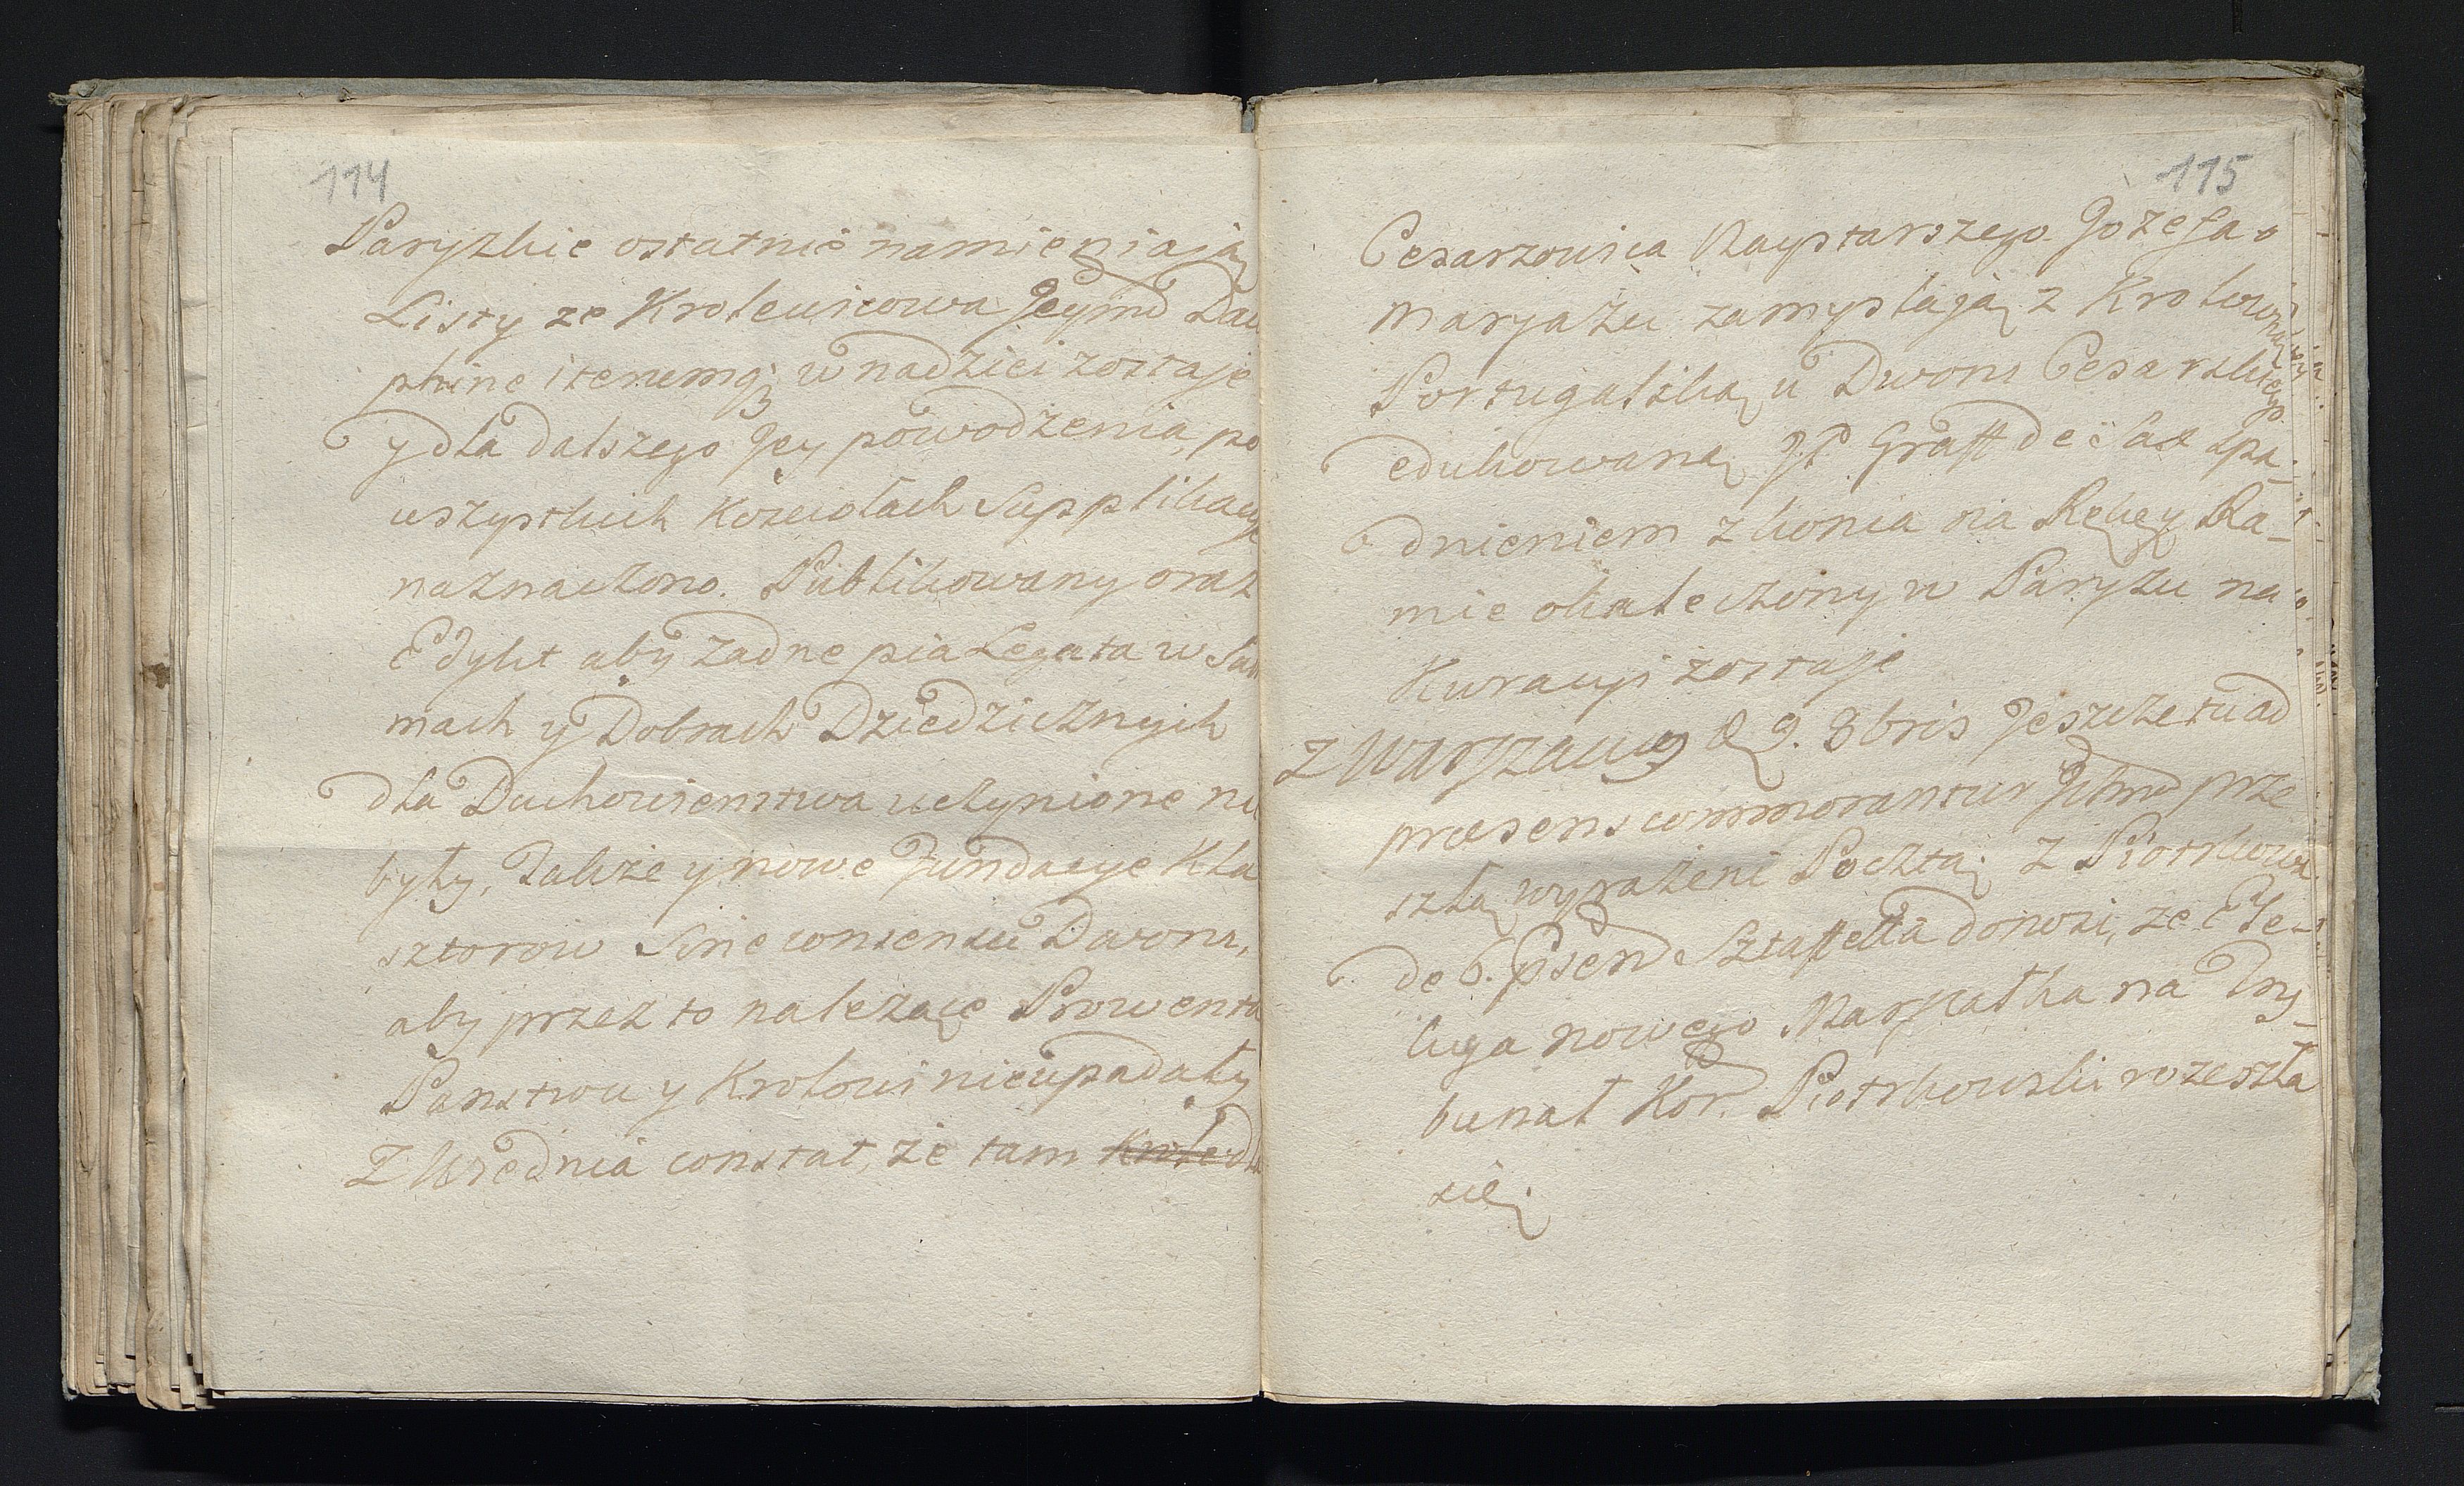 114
Paryzkie ostatnie namieniają
Listy ze Krolewicowa Jeymć Dau
phine iterum w nadziei zostaje
y dla dalszego Jey powodzenia, po
wszystkich Kosciołach Supplikacye
naznaczono. Publikowany oraz
Edykt aby żadne pia Legata w Sum
mach y Dobrach Dziedzicznych
dla Duchowienstwa uczynione nie
były, Takze y nowe Fundacye Kla
sztorow Sine consensu Dworu,
aby przez to nalezące Prowenta
Panstwu y Krolowi nie upadały
Z Wiednia constat, że tam
115
Cesarzowica Naystarszego Jozefa o
Maryażu zamyslają z Krolewną
Portugalską u Dworu Cesarskiego
edukowaną JP Graff de Sax spa_
dnieniem z konia na Rękę y Ra_
mie okaleczony w Paryżu na
Kuracyi zostaje
Z Warszawy D 9. 8bris Jeszcze tu ad
præsens commorantur Ichmć prze
szłą wyrażeni Pocztą. Z Piotrkowa
de 6. psen Sztaffetta donosi, ze Ele_
luga nowego Marszałka na Try_
bunał Kor. Piotrkowski rozeszła
się.